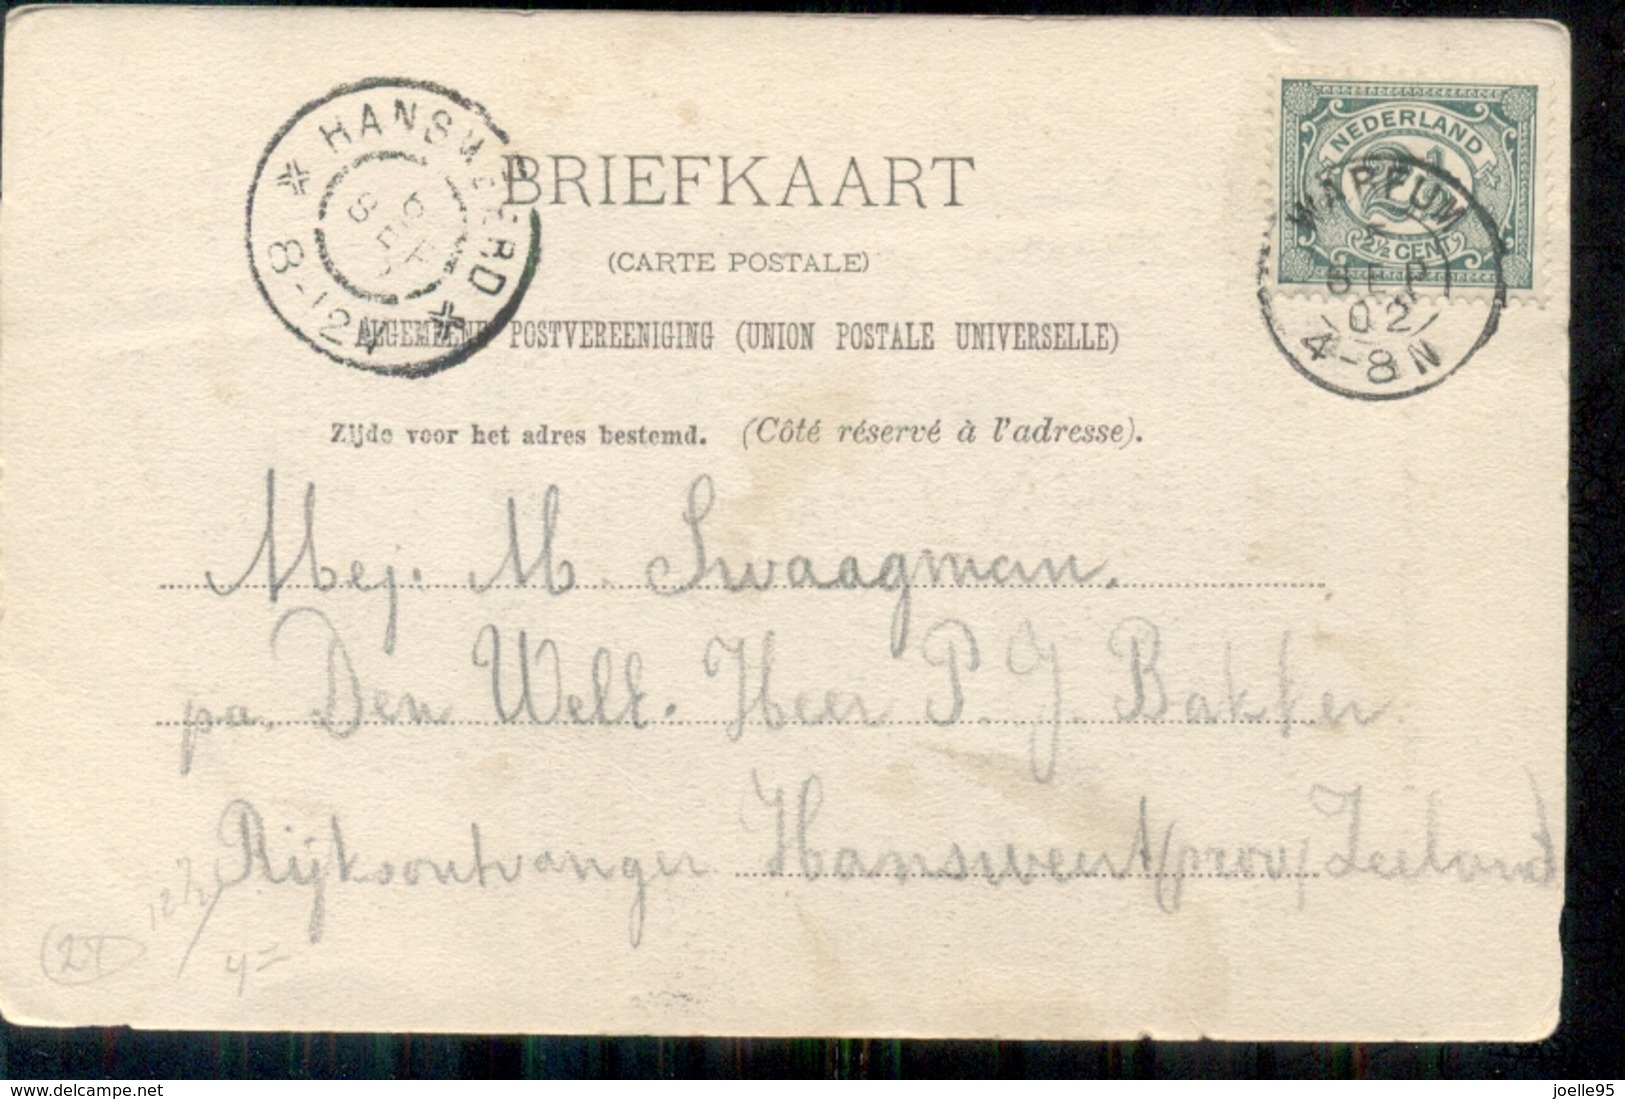 HANSWEERD
6 SEP
8-12V
BRIEFKAART
(CARTE POSTALE)
ALGEMEENE POSTVEREENIGING (UNION POSTALE UNIVERSELLE)
Zijde voor het adres bestemd. (Côté réservé à l'adresse).
NEDERLAND
2½
2½ CENT
WARFUM
SEP
02
4-8N
Mej. M. Swaagman.
pa. Den WelE. Heer P. J. Bakker
Rijksontvanger Hansweert (prov. Zeeland
12½
4=
delcampe.net
joelle95